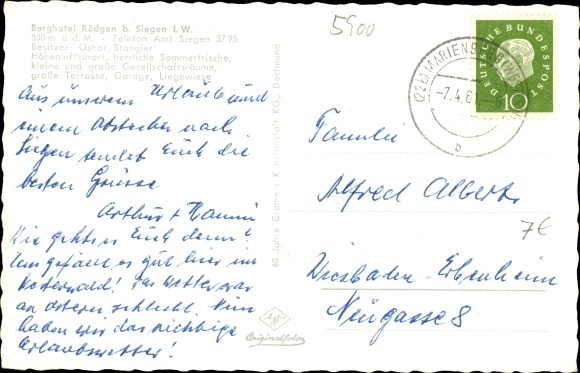 Berghotel Rödgen b. Siegen i. W.
500 m ü. d. M. - Telefon Amt Siegen 3795
Besitzer: Oskar Stangier
Höhenluftkurort, herrliche Sommerfrische,
kleine und große Gesellschaftsräume,
große Terrasse, Garage, Liegewiese
Aus unserem Urlaub und
einem Abstecher nach
Siegen sendet Euch die
besten Grüsse
Arthur + Hanni
Wie geht es Euch denn?
Uns gefällt es gut hier im
Westerwald! Das Wetter war
an Ostern schlecht. Nun
haben wir das richtige
Urlaubswetter!
60 Jahre Cramers Kunstanstalt KG., Dortmund
Originalfoto
5900
DEUTSCHE BUNDESPOST
10
(22b) MARIENBERG
-7.4.61.-
b
Familie
Alfred Albert
7€
Wiesbaden-Erbenheim
Neugasse 8